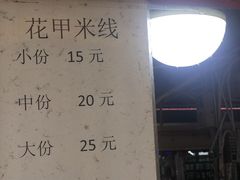 花甲米线
小份 15 元
中份 20 元
大份 25 元